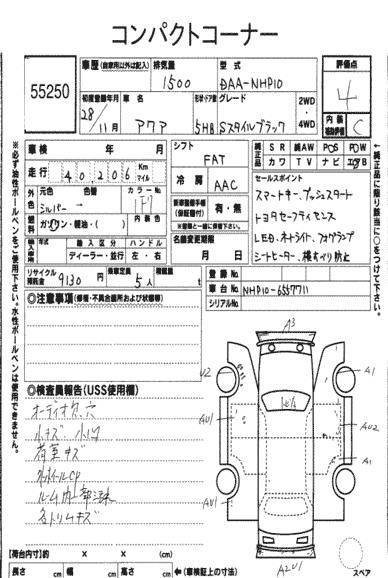 コンパクトコーナー
55250
車歴(自家用以外は記入) 排気量 型式 評価点
1500 DAA-NHP10 4
初度登録年月 車名 形状・ドア数 グレード 2WD・4WD 内装補助評価
28/11月 アクア 5HB Sスタイルブラック C
車検 年 月
走行 40206 Km マイル
シフト FAT
冷房 AAC
純正品 SR 純AW POS POW
カワ TV ナビ エアB
外色 元色 色替 カラーNo.
シルバー → 1F7
内装色
燃料 ガソリン・軽油・( )
輸入車 輸入区分 ハンドル
ディーラー・並行 左・右
新車整備手帳(保証書付) 有・無
※書類と一緒に後日送付
名義変更期限
月 日
セールスポイント
スマートキー、プッシュスタート
トヨタセーフティセンス
LED、オートライト、フォグランプ
シートヒーター、横すべり防止
リサイクル預託金 9130円 乗車定員 5人 積載量 t
登録No.
車台No. NHP10-6557711
シリアルNo.
◎注意事項(修復・不具合箇所および状態等)
◎検査員報告(USS使用欄)
オーディオ欠、穴
小キズ 小凹
荷室キズ
ホイールCP
ルーム内
各トリムキズ
A3
U2
A1
AU1
AU2
A1
AU1
A2U1
スペア
【荷台内寸】約 × × (cm)
長さ cm 幅 cm 高さ cm ←(車検証上の寸法)
※必ず油性ボールペンをご使用下さい。水性ボールペンは使用できません。
←純正品に限り該当に○をつけて下さい。